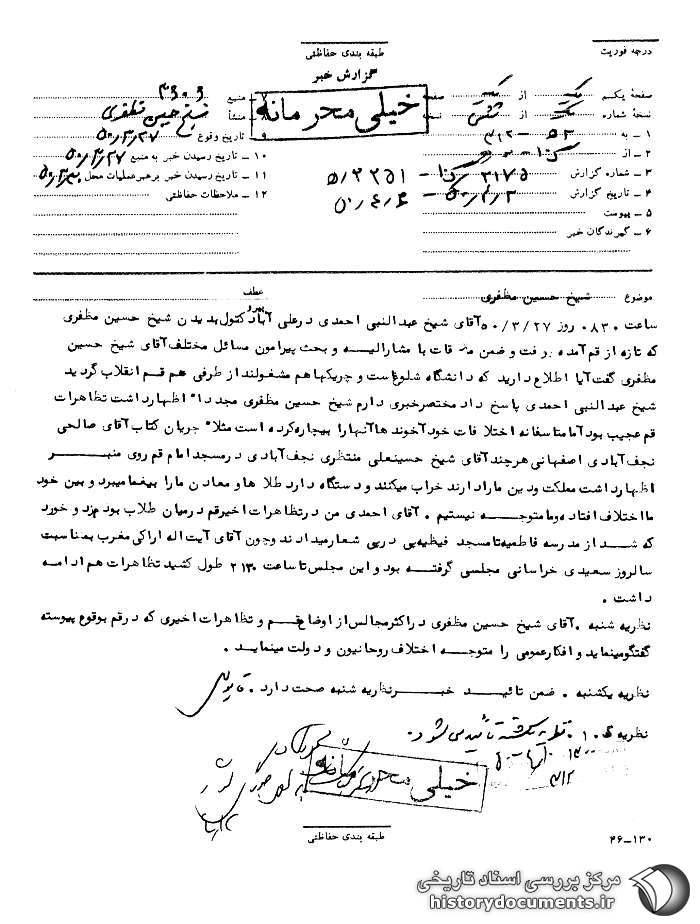 درجه فوریت
طبقه بندی حفاظتی
گزارش خبر
صفحهٔ یکم یک از یک صفحه
نسخهٔ شماره یک از شش نسخه
۱ ـ به ۳۱۲
۲ ـ از
۳ ـ شماره گزارش ۵۱/۲۲۵۱
۴ ـ تاریخ گزارش ۵۰/۴/۲
۵۰/۴/۶
۵ ـ پیوست
۶ ـ گیرندگان خبر
خیلی محرمانه
۷ ـ منبع
منشأ شیخ حسین مظفری
۹ ـ تاریخ وقوع ۵۰/۳/۲۷
۱۰ ـ تاریخ رسیدن خبر به منبع ۵۰/۳/۲۷
۱۱ ـ تاریخ رسیدن خبر برهبر عملیات محل
۱۲ ـ ملاحظات حفاظتی
موضوع شیخ حسین مظفری
عطف
ساعت ۰۸۳۰ روز ۵۰/۳/۲۷ آقای شیخ عبدالنبی احمدی در علی آباد کتول بدیدن شیخ حسین مظفری
که تازه از قم آمده بود رفت و ضمن ملاقات با مشارالیه و بحث پیرامون مسائل مختلف آقای شیخ حسین
مظفری گفت آیا اطلاع دارید که دانشگاه شلوغ است و چریکها هم مشغولند از طرفی هم قم انقلاب گردید
شیخ عبدالنبی احمدی پاسخ داد مختصر خبری دارم شیخ حسین مظفری مجدداً اظهار داشت تظاهرات
قم عجیب بود اما متاسفانه اختلافات خود آخوند ها آنها را بیچاره کرده است مثلاً جریان کتاب آقای صالحی
نجف آبادی اصفهانی هر چند آقای شیخ حسینعلی منتظری نجف آبادی در مسجد امام قم روی منبر
اظهار داشت مملکت و دین ما را دارند خراب میکنند و دستگاه دارد طلا ها و معادن ما را بیغما میبرد و بین خود
ما اختلاف افتاده و ما متوجه نیستیم . آقای احمدی من در تظاهرات اخیر قم در میان طلاب بودم زد و خورد
که شد از مدرسه فاطمیه تا مسجد فیظیه پی در پی شعار میدادند و چون آقای آیت اله اراکی مغرب بمناسبت
سالروز سعیدی خراسانی مجلسی گرفته بود و این مجلس تا ساعت ۲۱۳۰ طول کشید تظاهرات هم ادامه
داشت .
نظریه شنبه . آقای شیخ حسین مظفری در اکثر مجالس از اوضاع قم و تظاهرات اخیری که در قم بوقوع پیوسته
گفتگو مینماید و افکار عمومی را متوجه اختلاف روحانیون و دولت مینماید .
نظریه یکشنبه . ضمن تائید خبر نظریه شنبه صحت دارد .
نظریه ۱۰ . نظریه یکشنبه تأیید می شود .
۳۱۲
خیلی محرمانه
طبقه بندی حفاظتی
۴۶-۱۳۰
مرکز بررسی اسناد تاریخی
historydocuments.ir